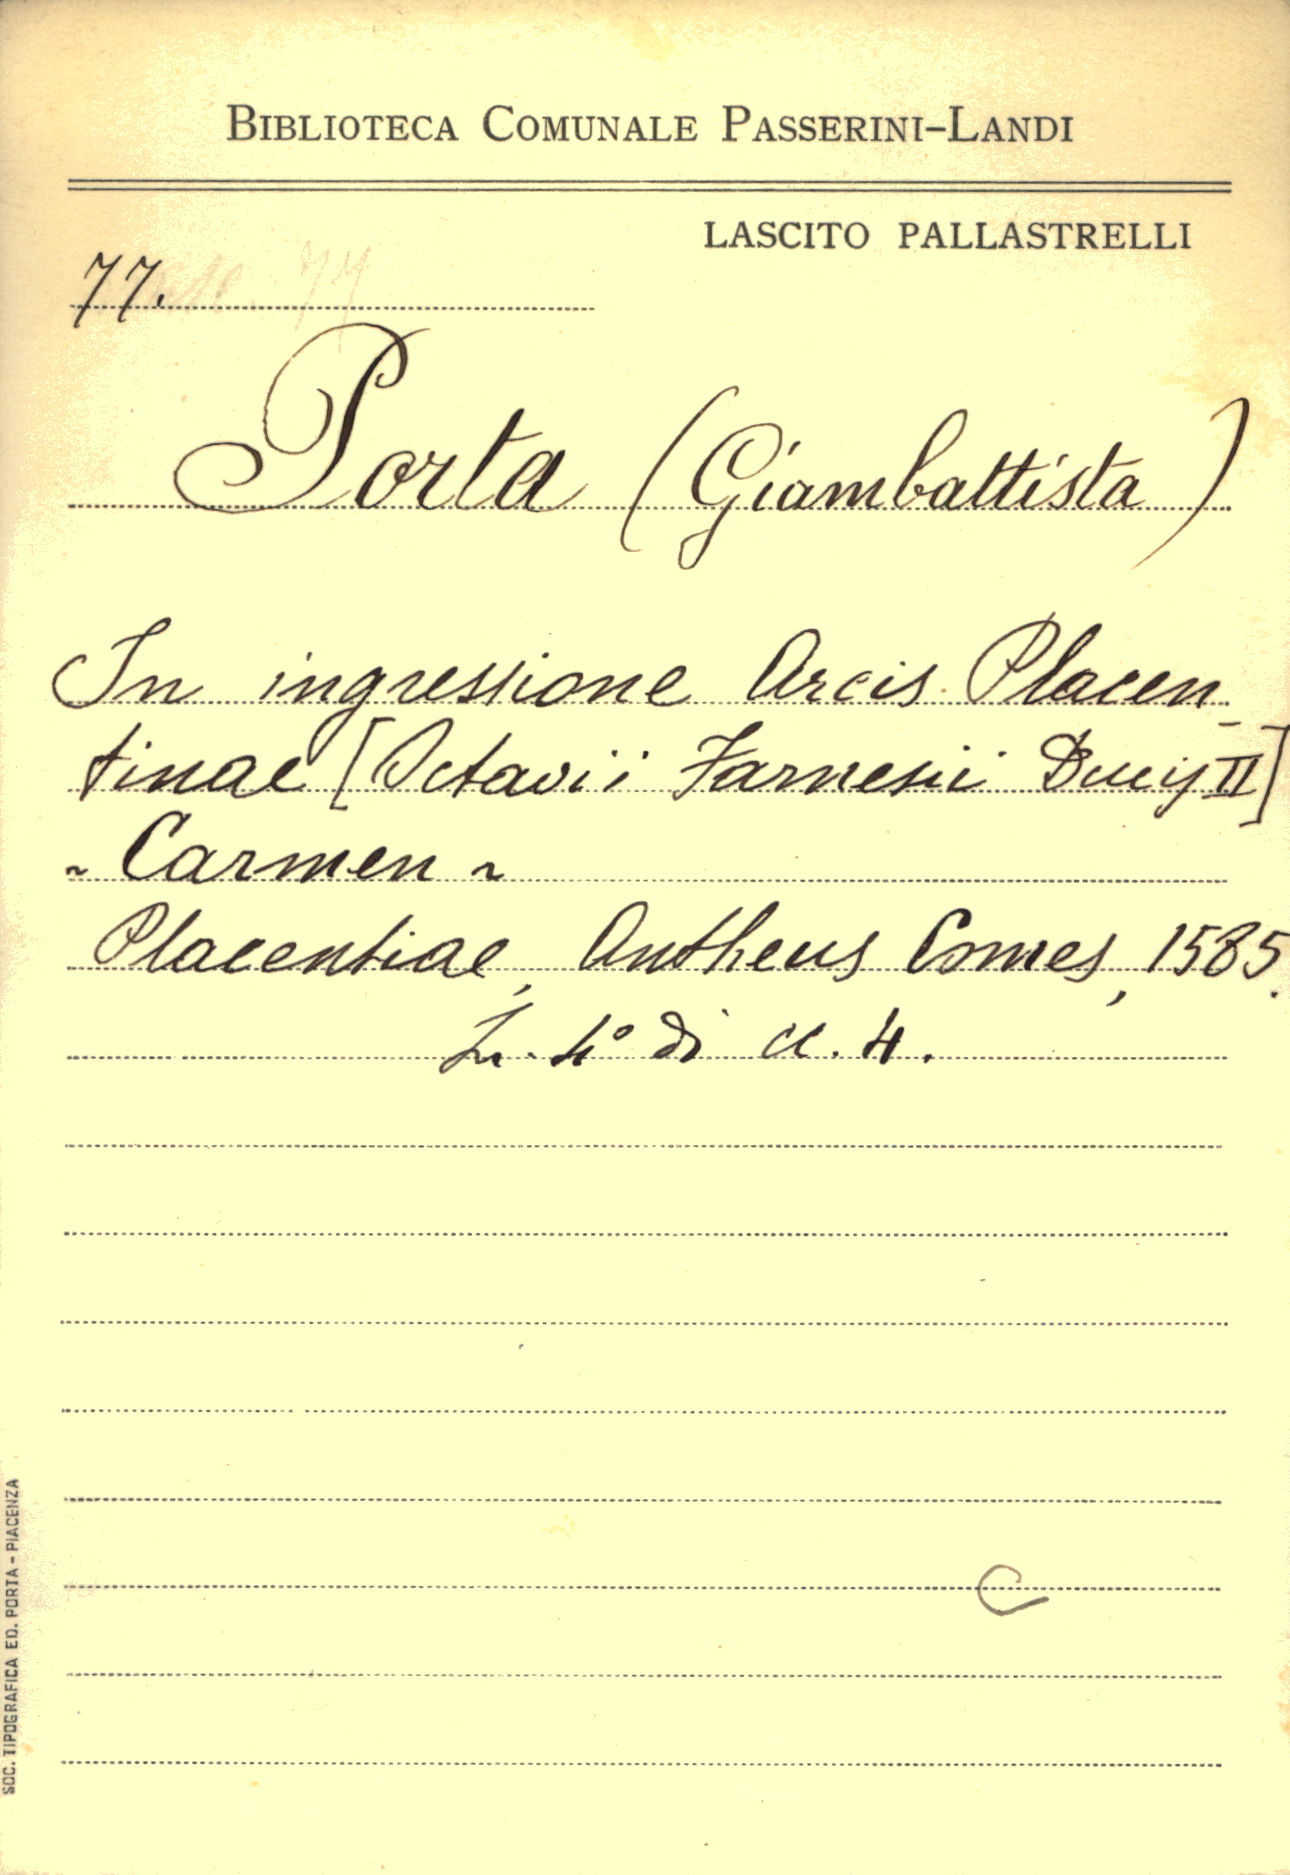 BIBLIOTECA COMUNALE PASSERINI-LANDI
LASCITO PALLASTRELLI
77.
Porta (Giambattista)
In ingressione Arcis Placen-
tinae [Octavii Farnesii Ducis II]
~ Carmen ~
Placentiae, Antheus Comes, 1585.
In. 4° di cc. 4.
C
SOC. TIPOGRAFICA ED. PORTA - PIACENZA